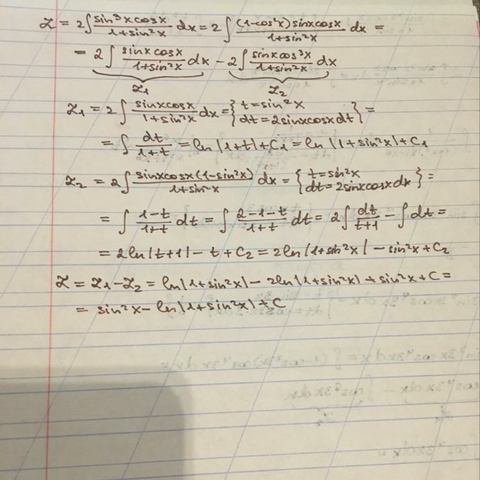 I = 2∫ sin³x cosx / 1+sin²x dx = 2∫ (1-cos²x) sinx cosx / 1+sin²x dx =
= 2∫ sinx cosx / 1+sin²x dx - 2∫ sinx cos³x / 1+sin²x dx
I₁ I₂
I₁ = 2∫ sinx cosx / 1+sin²x dx = { t = sin²x dt = 2sinx cosx dt } =
= ∫ dt / 1+t = ln|1+t| + C₁ = ln|1+sin²x| + C₁
I₂ = 2∫ sinx cosx (1-sin²x) / 1+sin²x dx = { t = sin²x dt = 2sinx cosx dx } =
= ∫ 1-t / 1+t dt = ∫ 2-1-t / 1+t dt = 2∫ dt / t+1 - ∫ dt =
= 2ln|t+1| - t + C₂ = 2ln|1+sin²x| - sin²x + C₂
I = I₁ - I₂ = ln|1+sin²x| - 2ln|1+sin²x| + sin²x + C =
= sin²x - ln|1+sin²x| + C